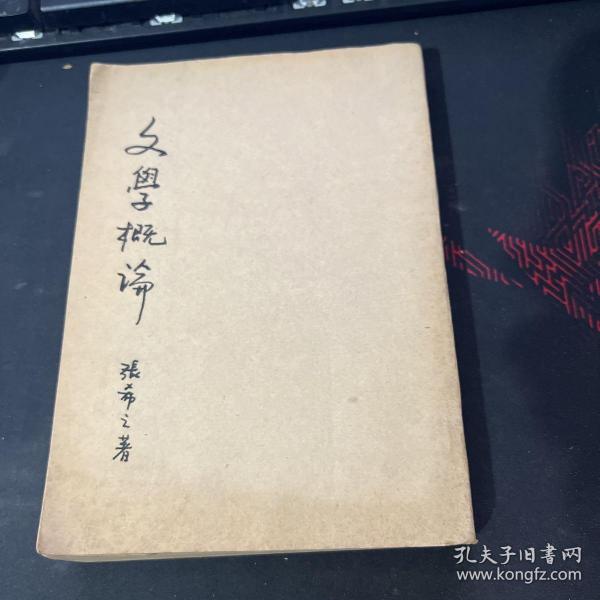 文學概論
張希之著
孔夫子旧書网
www.kongfz.com